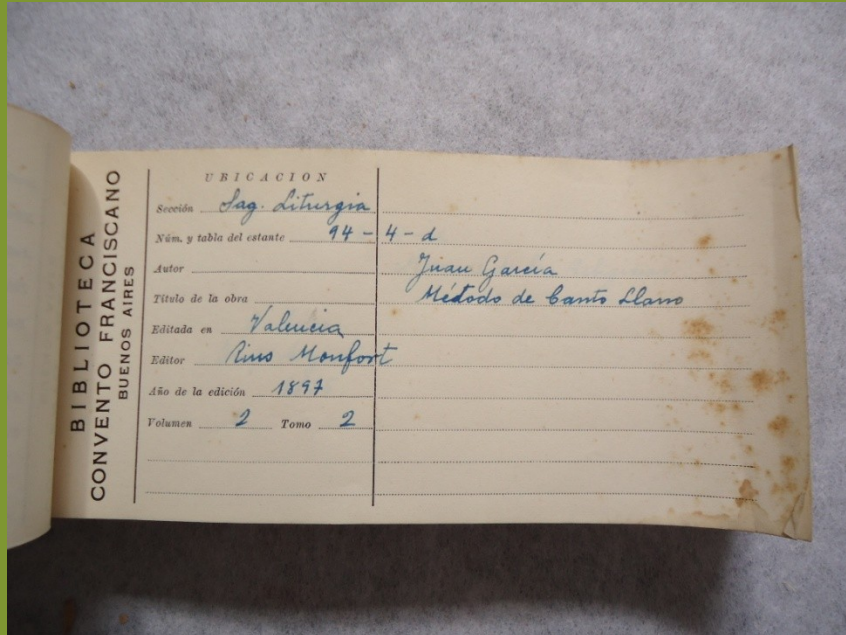 BIBLIOTECA
CONVENTO FRANCISCANO
BUENOS AIRES
UBICACION
Sección Sag. Liturgia
Núm. y tabla del estante 94-4-d
Autor Juan García
Título de la obra Método de Canto Llano
Editada en Valencia
Editor Rius Monfort
Año de la edición 1897
Volumen 2 Tomo 2